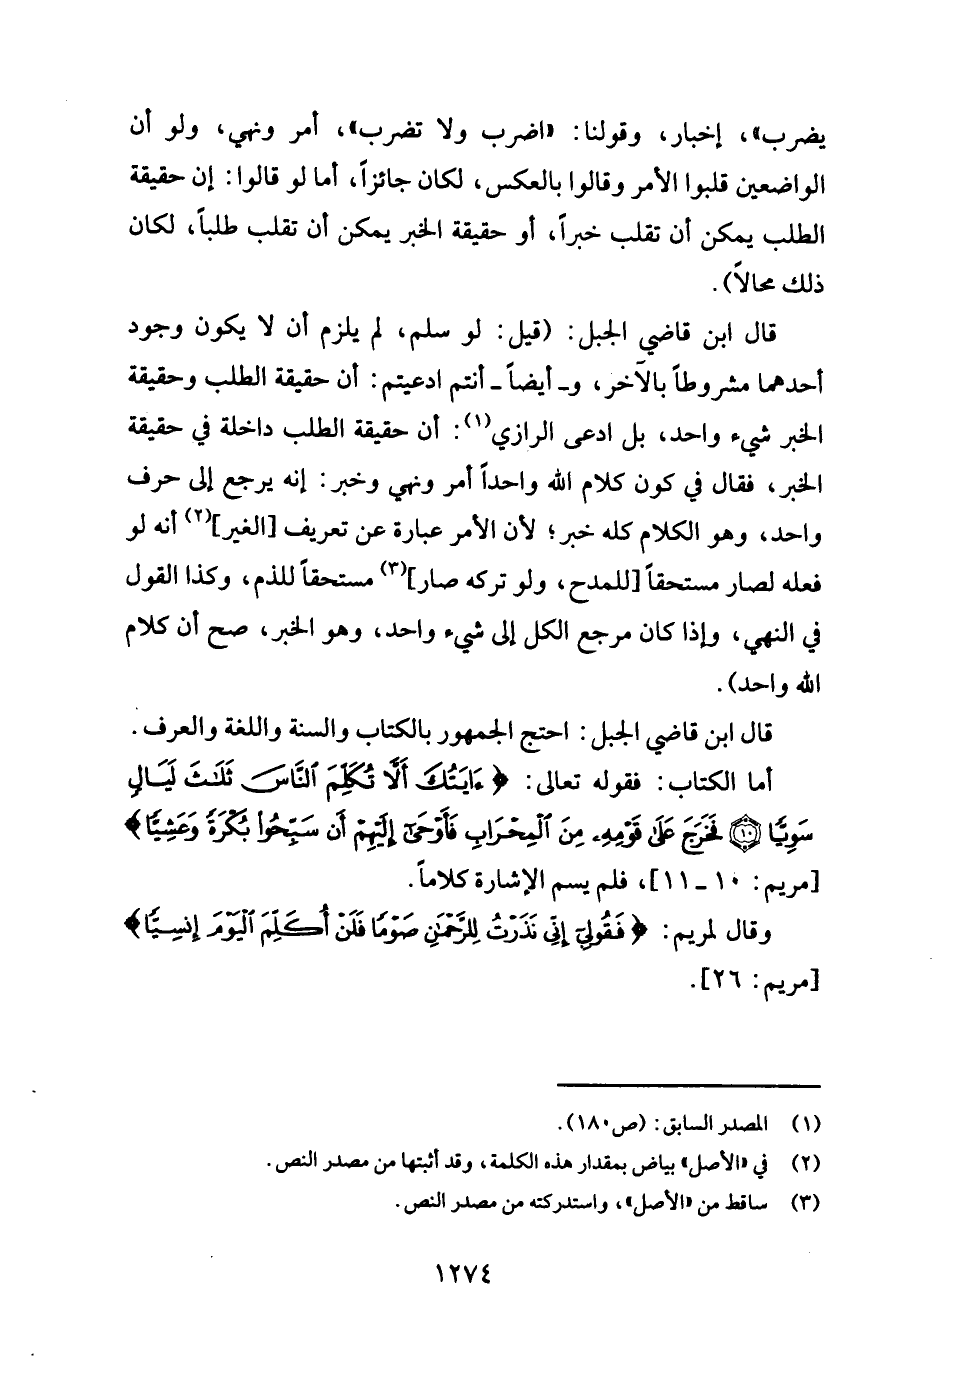 يضرب»، إخبار، وقولنا: «اضرب ولا تضرب»، أمر ونهي، ولو أن
الواضعين قلبوا الأمر وقالوا بالعكس، لكان جائزاً، أما لو قالوا: إن حقيقة
الطلب يمكن أن تقلب خبراً، أو حقيقة الخبر يمكن أن تقلب طلباً، لكان
ذلك محالاً).
قال ابن قاضي الجبل: (قيل: لو سلم، لم يلزم أن لا يكون وجود
أحدهما مشروطاً بالآخر، و۔ أيضاً ۔ أنتم ادعيتم: أن حقيقة الطلب وحقيقة
الخبر شيء واحد، بل ادعى الرازي(١): أن حقيقة الطلب داخلة في حقيقة
الخبر، فقال في كون كلام الله واحداً أمر ونهي وخبر: إنه يرجع إلى حرف
واحد، وهو الكلام كله خبر؛ لأن الأمر عبارة عن تعريف [الغير](٢) أنه لو
فعله لصار مستحقاً [للمدح، ولو تركه صار](٣) مستحقاً للذم، وكذا القول
في النهي، وإذا كان مرجع الكل إلى شيء واحد، وهو الخبر، صح أن كلام
الله واحد).
قال ابن قاضي الجبل: احتج الجمهور بالكتاب والسنة واللغة والعرف.
أما الكتاب: فقوله تعالى: ﴿ ءَايَتُكَ أَلَّا تُكَلِّمَ ٱلنَّاسَ ثَلَٰثَ لَيَالٍ
سَوِيًّا ١٠ فَخَرَجَ عَلَىٰ قَوْمِهِۦ مِنَ ٱلْمِحْرَابِ فَأَوْحَىٰٓ إِلَيْهِمْ أَن سَبِّحُوا۟ بُكْرَةً وَعَشِيًّا ﴾
[مريم: ١٠ ـ ١١]، فلم يسم الإشارة كلاماً.
وقال لمريم: ﴿ فَقُولِىٓ إِنِّى نَذَرْتُ لِلرَّحْمَٰنِ صَوْمًا فَلَنْ أُكَلِّمَ ٱلْيَوْمَ إِنسِيًّا ﴾
[مريم: ٢٦].
(١) المصدر السابق: (ص١٨٠).
(٢) في «الأصل» بياض بمقدار هذه الكلمة، وقد أثبتها من مصدر النص.
(٣) ساقط من «الأصل»، واستدركته من مصدر النص.
١٢٧٤